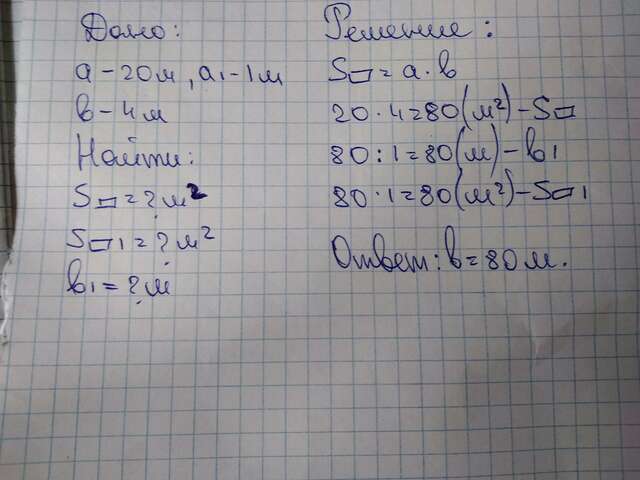 Дано:
a - 20м, a1 - 1м
в - 4м
Найти:
S▭ = ? м²
S▭1 = ? м²
в1 = ? м
Решение:
S▭ = a · в
20 · 4 = 80 (м²) - S▭
80 : 1 = 80 (м) - в1
80 · 1 = 80 (м²) - S▭1
Ответ: в = 80 м.